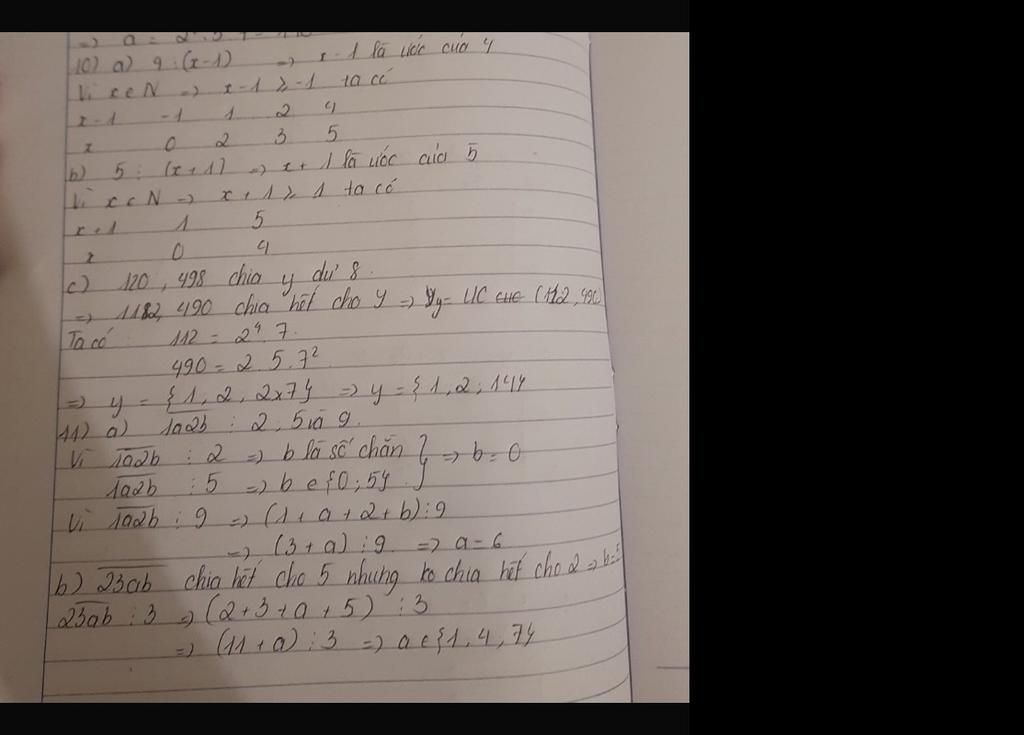 => a = 2
10) a) 4 ⋮ (x-1) => x-1 là ước của 4
Vì x ∈ N => x-1 ≥ -1 ta có
x-1 -1 1 2 4
x 0 2 3 5
b) 5 ⋮ (x+1) => x+1 là ước của 5
Vì x ∈ N => x+1 ≥ 1 ta có
x+1 1 5
x 0 4
c) 120, 498 chia y dư 8.
=> 112, 490 chia hết cho y => y = ƯC (112, 490)
Ta có: 112 = 2⁴.7.
490 = 2.5.7²
=> y = {1, 2, 2x7} => y = {1, 2; 14}
11) a) 1a2b ⋮ 2, 5 và 9.
Vì 1a2b ⋮ 2 => b là số chẵn } => b = 0
1a2b ⋮ 5 => b ∈ {0; 5}
Vì 1a2b ⋮ 9 => (1 + a + 2 + b) ⋮ 9
=> (3 + a) ⋮ 9 => a = 6
b) 23ab chia hết cho 5 nhưng ko chia hết cho 2 => b = 5
23ab ⋮ 3 => (2+3+a+5) ⋮ 3
=> (11 + a) ⋮ 3 => a ∈ {1, 4, 7}